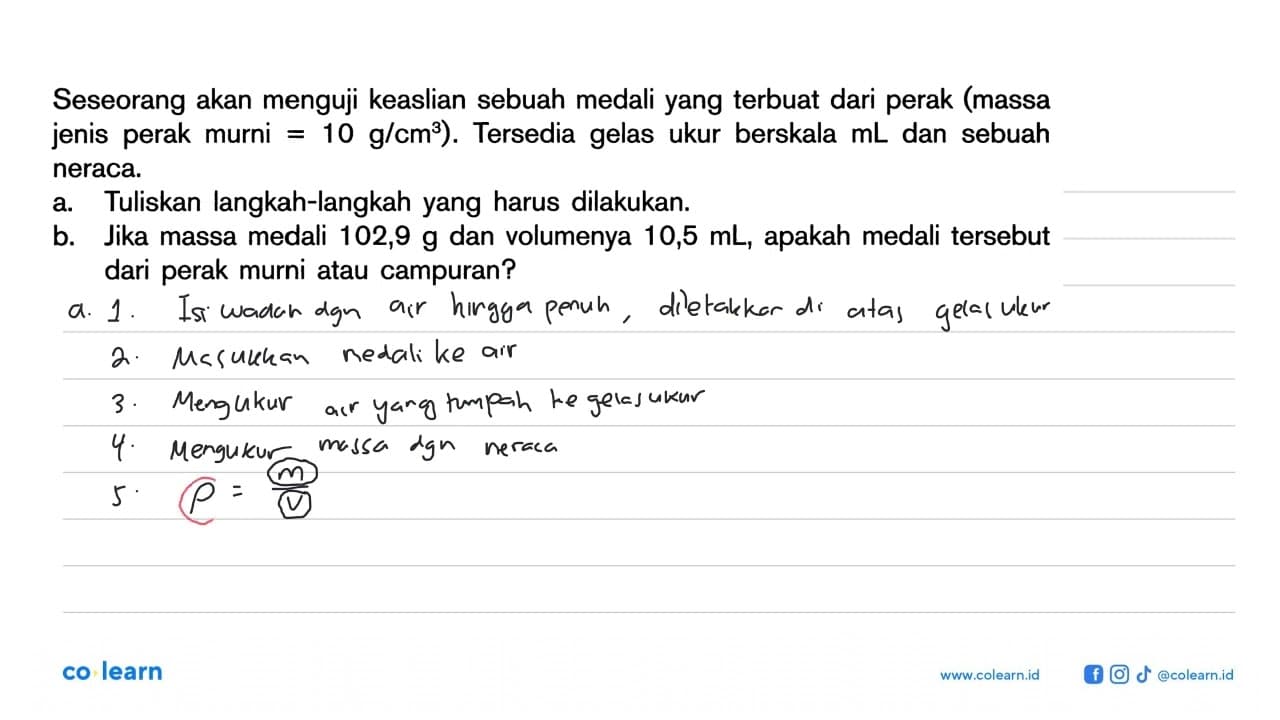 Seseorang akan menguji keaslian sebuah medali yang terbuat dari perak (massa
jenis perak murni = 10 g/cm³). Tersedia gelas ukur berskala mL dan sebuah
neraca.
a. Tuliskan langkah-langkah yang harus dilakukan.
b. Jika massa medali 102,9 g dan volumenya 10,5 mL, apakah medali tersebut
dari perak murni atau campuran?
a. 1. Isi wadah dgn air hingga penuh, diletakkan di atas gelas ukur
2. Masukkan medali ke air
3. Mengukur air yang tumpah ke gelas ukur
4. Mengukur massa dgn neraca
5. ρ = m/V
co learn
www.colearn.id
@colearn.id